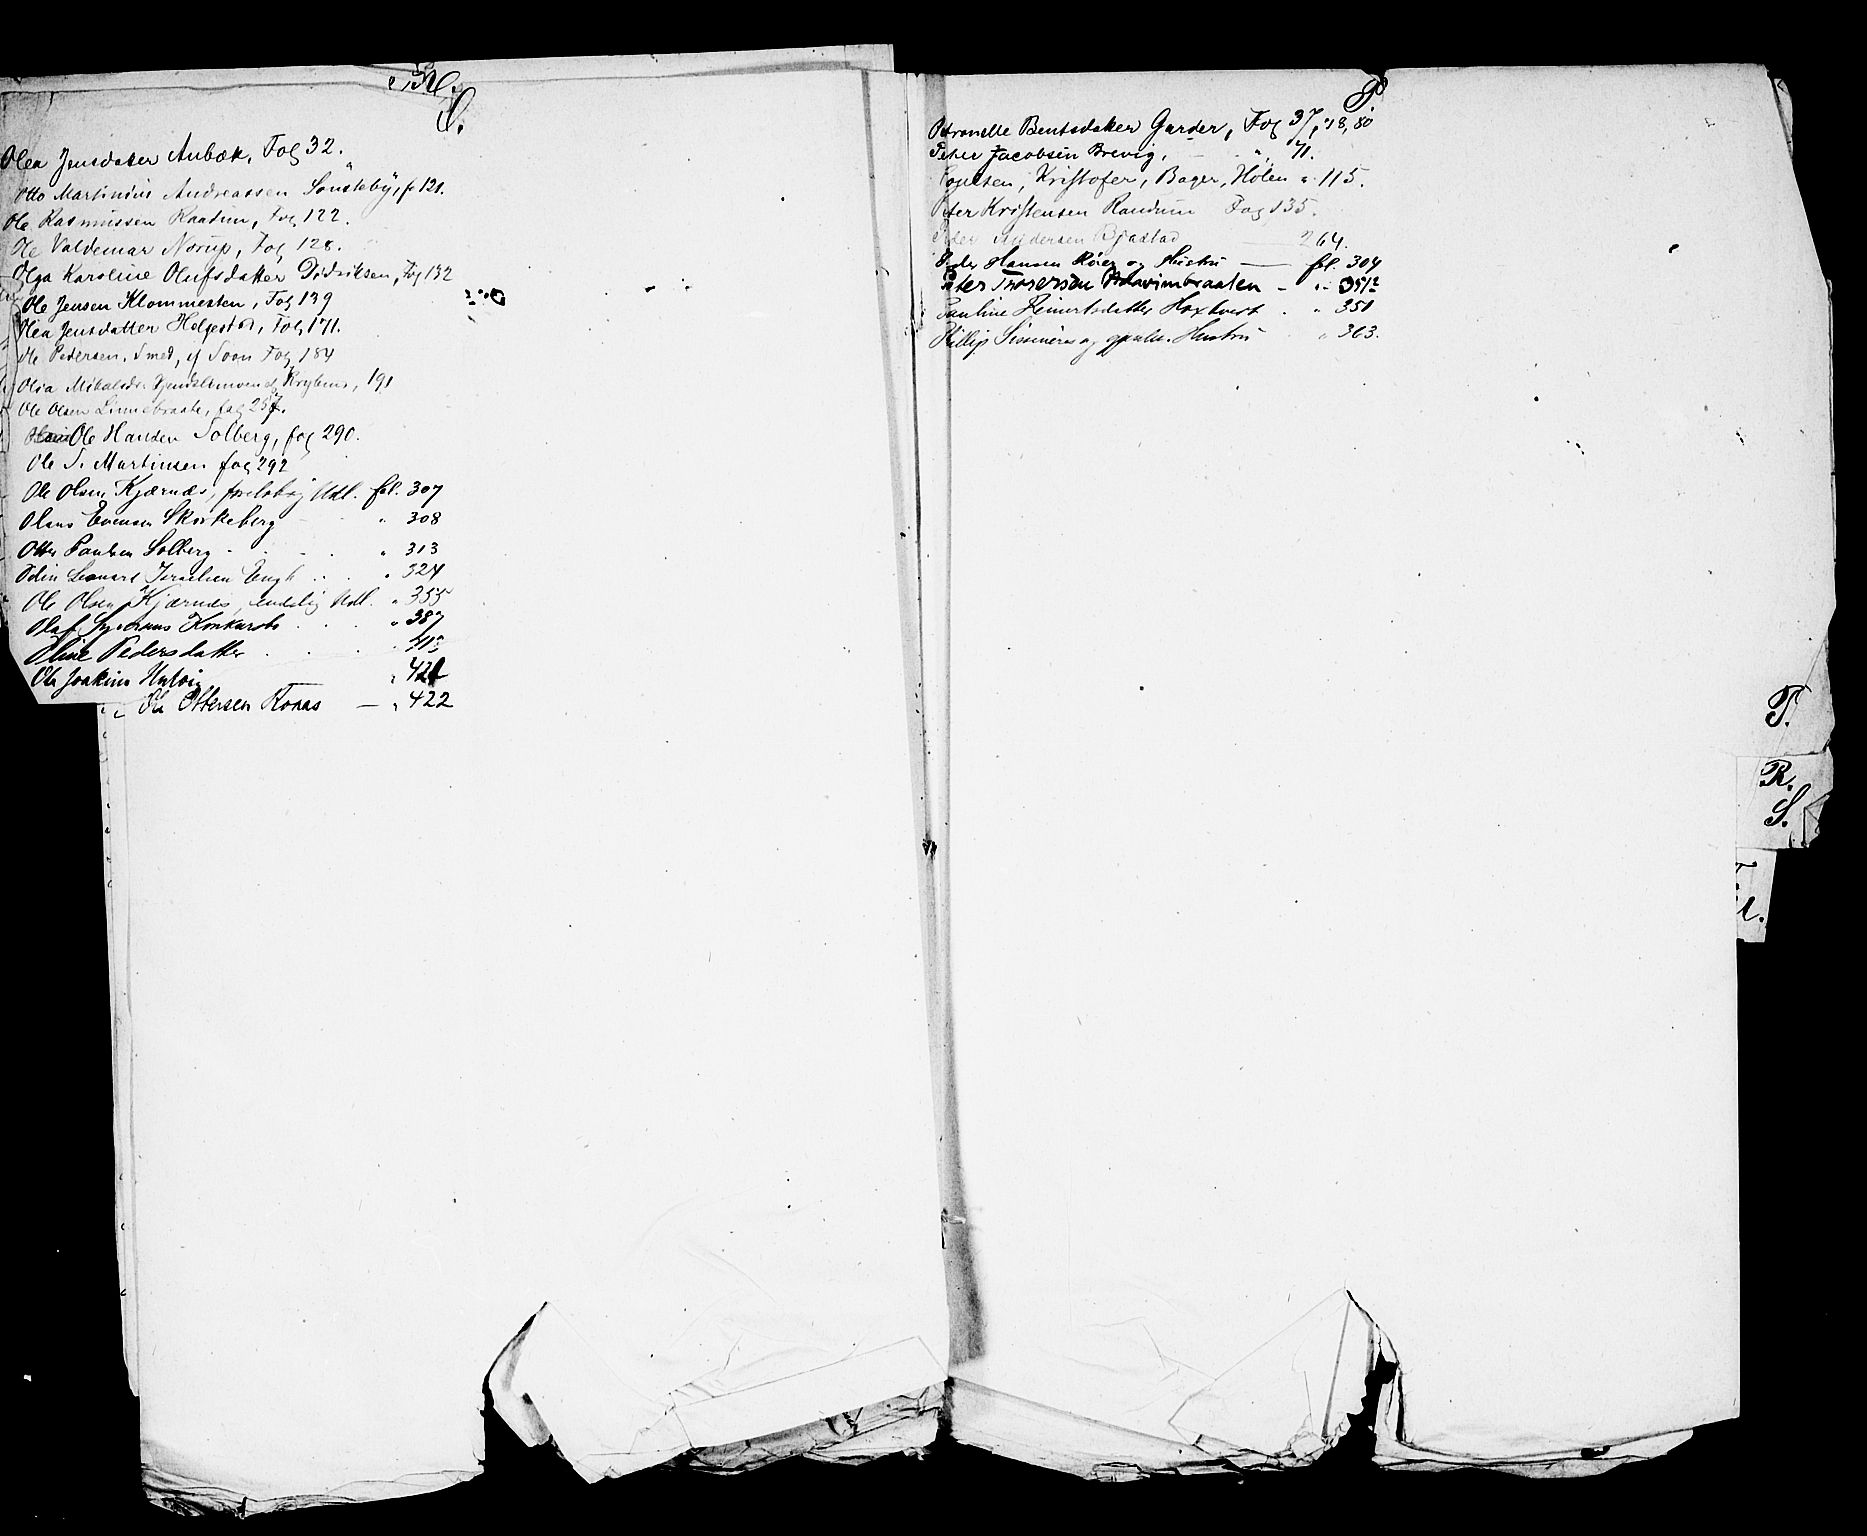 O.
Olea Jensdatter Aubæk, Fol 32.
Otto Martinius Andreassen Sönsteby, f 121.
Ole Rasmussen Raadum, Fol 122.
Ole Valdemar Norup, Fol 128.
Olga Karoline Olufsdatter Didriksen, Fol 132
Ole Jensen Klommesten, Fol 139
Olea Jensdatter Helgestad, Fol 171.
Ole Pedersen, Smed, af Soon Fol 184
Olia Mikalsdr. 191
Ole Olsen Linnebraate, fol 257.
Ole Hansen Solberg, fol 290.
Ole S. Martinsen fol 292
Ole Olsen Kjærnæs, foreløbig Udl. fol. 307
Olaus Evensen Skorkeberg " 308
Otter Paulsen Solberg " 313
Odin Leonart Israelsen Engh " 324
Ole Olsen Kjærnæs, endelig Udl. " 355
Olaf Konkursbo " 387
Oline Pedersdatter
Ole Joakim Hulvig " 421
Ole Ottersen Ronas — " 422
P.
Petronelle Bentsdatter Garder, Fol 37, 78, 80
Peter Jacobsen Brevig, " 71.
Poulsen, Kristofer, Bager, Hølen " 115.
Peter Kristensen Randum Fol 135.
Peder Andersen Bjastad — 264.
Peder Hansen Røier og Hustru — fol. 304
Peter Thoresen
Pauline Reinertsdatter Haxtvet " 351
Phillip Simmenes og Hustru " 363.
P.
R.
S.
T.
U.